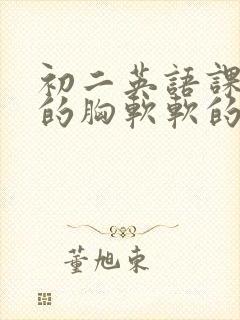 初二英語課
的胸軟軟的
董旭東